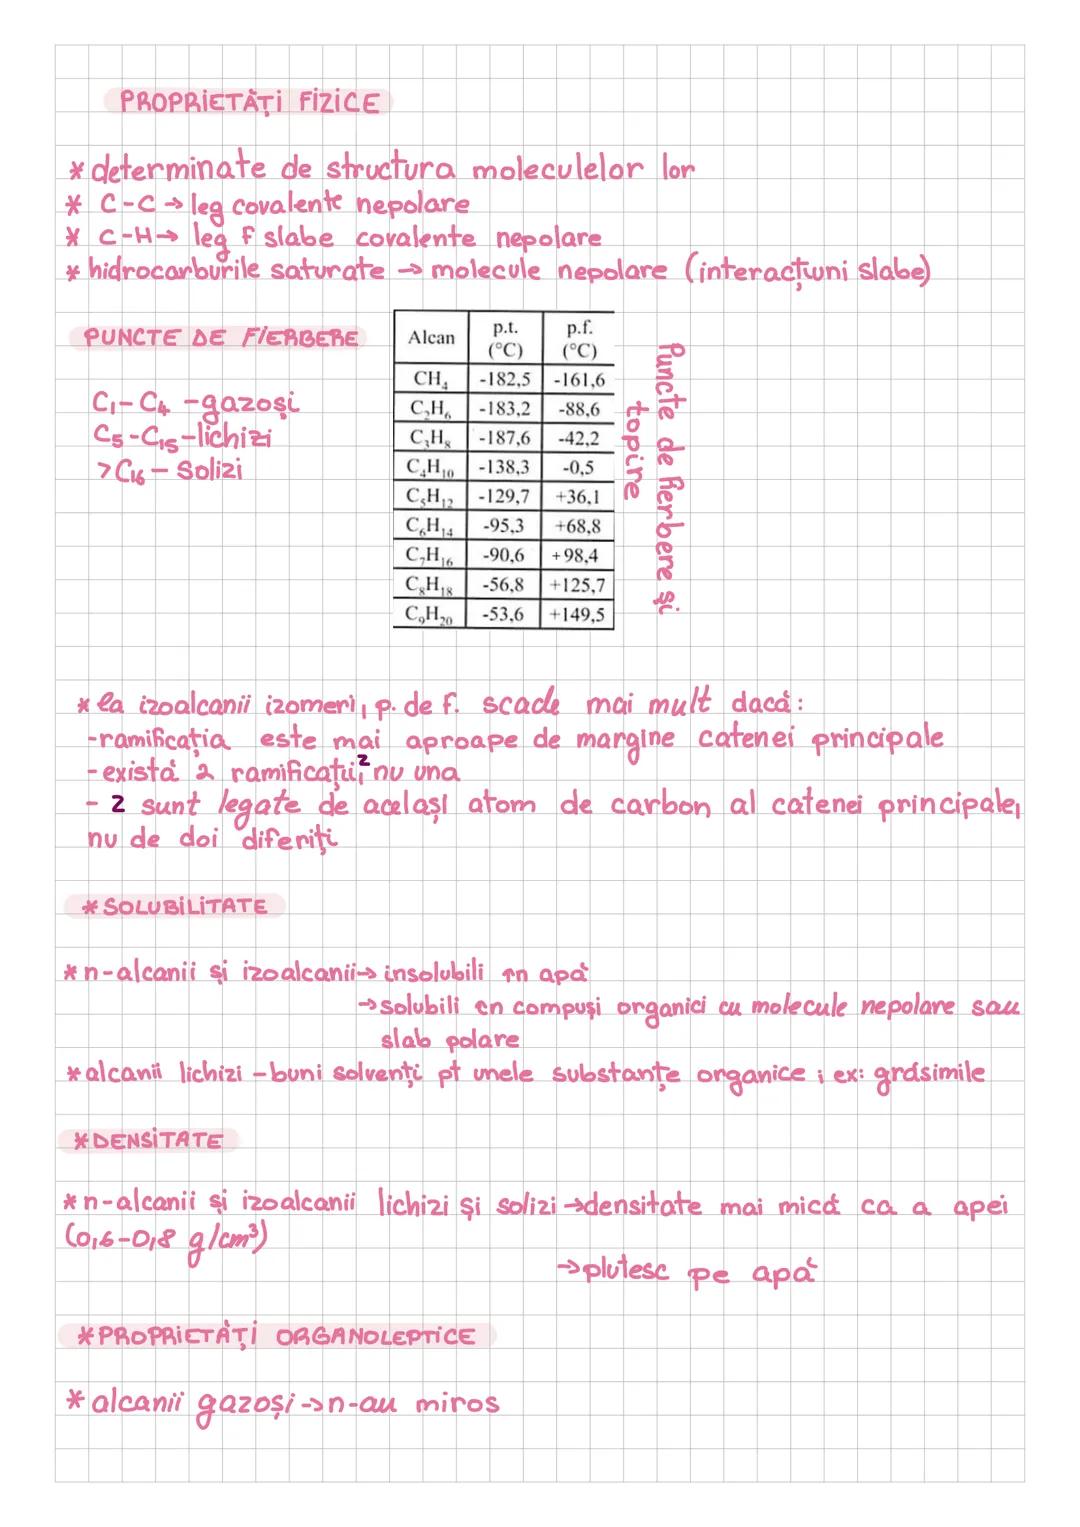 PROPRIETĂȚI FIZICE
* determinate de structura moleculelor lor
* C-C → leg covalente nepolare
* C-H → leg f slabe covalente nepolare
* hidrocarburile saturate → molecule nepolare (interacțiuni slabe)
PUNCTE DE FIERBERE
C₁-C₄ -gazoși
C₅-C₁₅-lichizi
>C₁₆ - Solizi
Alcan p.t. (°C) p.f. (°C)
CH₄ -182,5 -161,6
C₂H₆ -183,2 -88,6
C₃H₈ -187,6 -42,2
C₄H₁₀ -138,3 -0,5
C₅H₁₂ -129,7 +36,1
C₆H₁₄ -95,3 +68,8
C₇H₁₆ -90,6 +98,4
C₈H₁₈ -56,8 +125,7
C₉H₂₀ -53,6 +149,5
Puncte de fierbere și
topire
* la izoalcanii izomeri, p. de f. scade mai mult dacă:
-ramificația este mai aproape de margine catenei principale
-există 2 ramificații,² nu una
- 2 sunt legate de același atom de carbon al catenei principale,
nu de doi diferiți
* SOLUBILITATE
* n-alcanii și izoalcanii → insolubili în apă
→ solubili în compuși organici cu molecule nepolare sau
slab polare
* alcanii lichizi - buni solvenți pt unele substanțe organice ; ex: grăsimile
* DENSITATE
* n-alcanii și izoalcanii lichizi și solizi → densitate mai mică ca a apei
(0,6-0,8 g/cm³)
→ plutesc pe apă
* PROPRIETĂȚI ORGANOLEPTICE
* alcanii gazoși → n-au miros